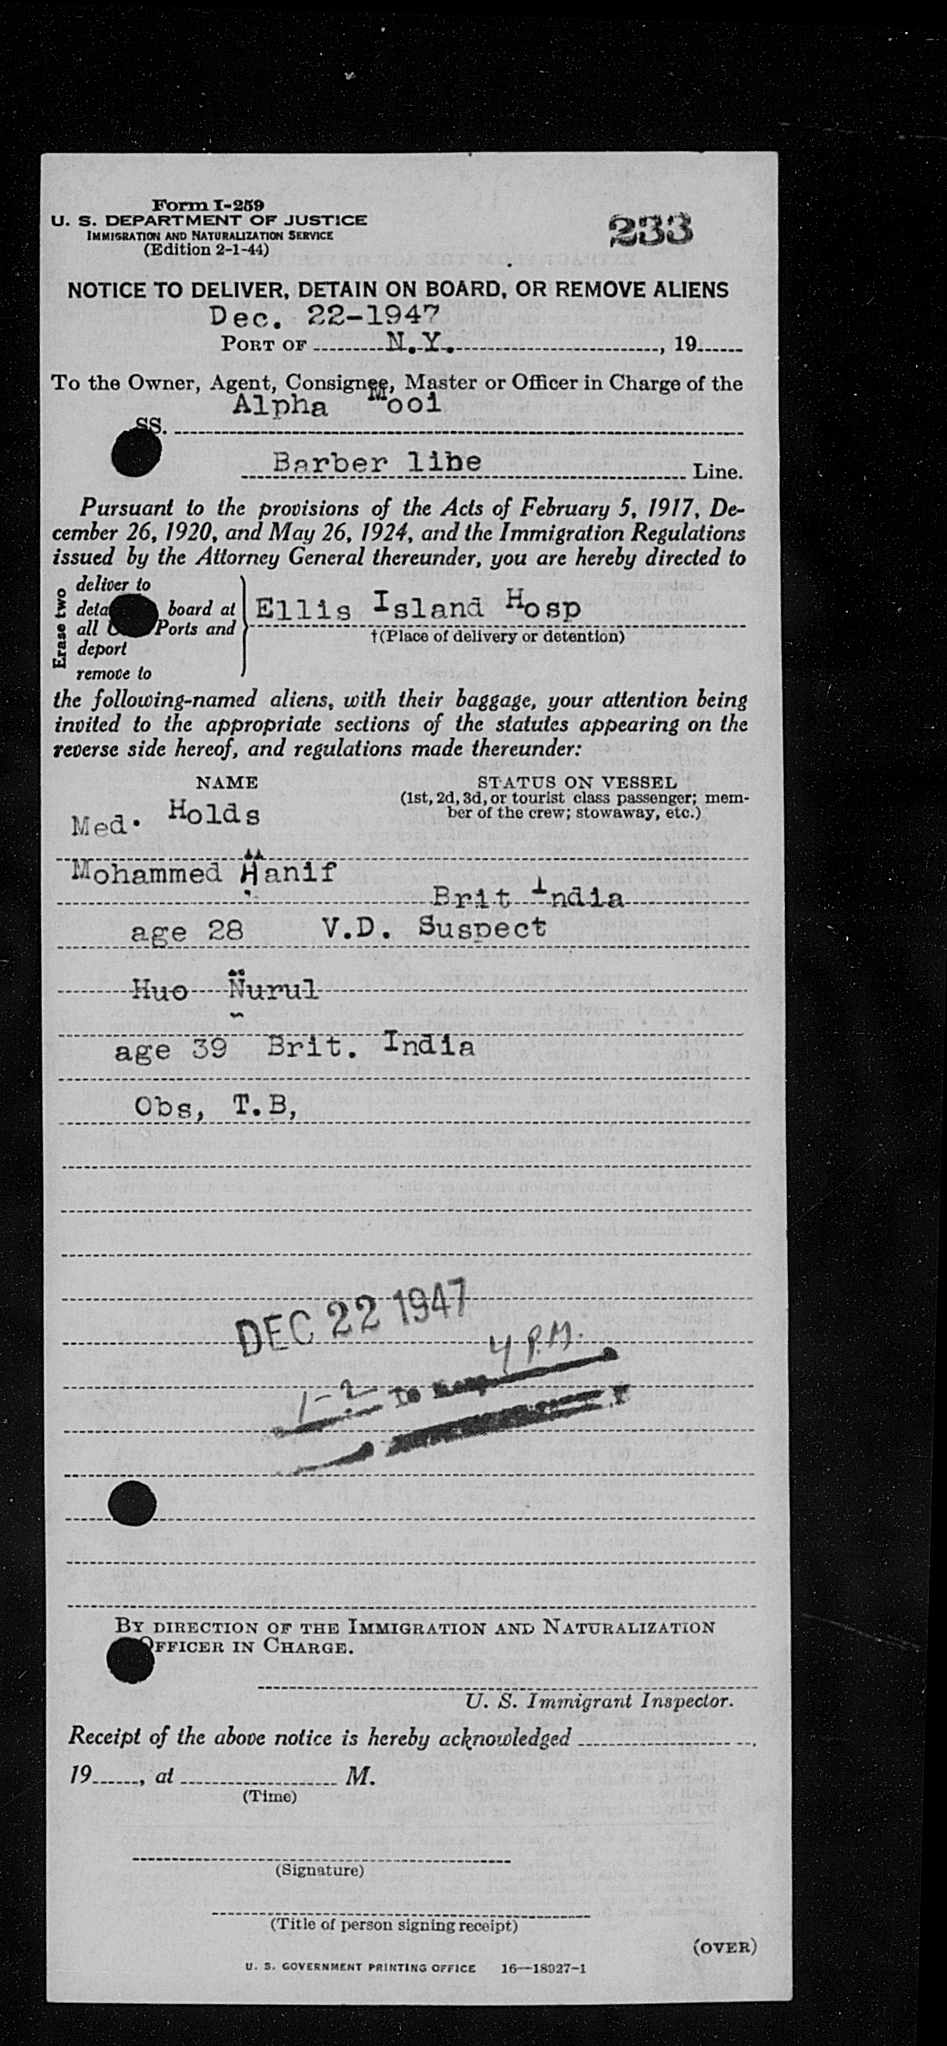 Form I-259
U. S. DEPARTMENT OF JUSTICE
IMMIGRATION AND NATURALIZATION SERVICE
(Edition 2-1-44)
233
NOTICE TO DELIVER, DETAIN ON BOARD, OR REMOVE ALIENS
Dec. 22-1947
PORT OF N.Y. , 19
To the Owner, Agent, Consignee, Master or Officer in Charge of the
Alpha Mool
SS.
Barber lihe Line.
Pursuant to the provisions of the Acts of February 5, 1917, De-
cember 26, 1920, and May 26, 1924, and the Immigration Regulations
issued by the Attorney General thereunder, you are hereby directed to
Erase two
deliver to
board at
all Ports and
deport
remove to
Ellis Island Hosp
†(Place of delivery or detention)
the following-named aliens, with their baggage, your attention being
invited to the appropriate sections of the statutes appearing on the
reverse side hereof, and regulations made thereunder:
NAME STATUS ON VESSEL
(1st, 2d, 3d, or tourist class passenger; mem-
ber of the crew; stowaway, etc.)
Med. Holds
Mohammed Hanif
Brit India
age 28 V.D. Suspect
Huo Nurul
age 39 Brit. India
Obs, T.B,
DEC 22 1947
4 P.M.
1-2
BY DIRECTION OF THE IMMIGRATION AND NATURALIZATION
OFFICER IN CHARGE.
U. S. Immigrant Inspector.
Receipt of the above notice is hereby acknowledged
19 , at M.
(Time)
(Signature)
(Title of person signing receipt)
(OVER)
U. S. GOVERNMENT PRINTING OFFICE 16—18927-1